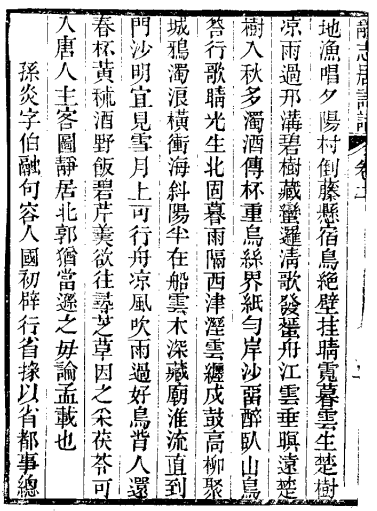 靜志居詩話 卷二
地漁唱夕陽村倒藤懸宿鳥絕壁挂晴霓暮雲生楚樹
凉雨過邗溝碧樹藏蠻邏清歌發蜑舟江雲垂暝遠楚
樹入秋多濁酒傳杯重烏絲界紙勻岸沙留醉臥山鳥
答行歌晴光生北固暮雨隔西津溼雲纏戍鼓高柳聚
城鴉濁浪橫衝海斜陽半在船雲木深藏廟淮流直到
門沙明宜見雪月上可行舟凉風吹雨過好鳥背人還
春杯黃秫酒野飯碧芹羹欲往尋芝草因之采茯苓可
入唐人主客圖靜居北郭猶當遜之毋論孟載也
孫炎字伯融句容人國初辟行省掾以省都事總